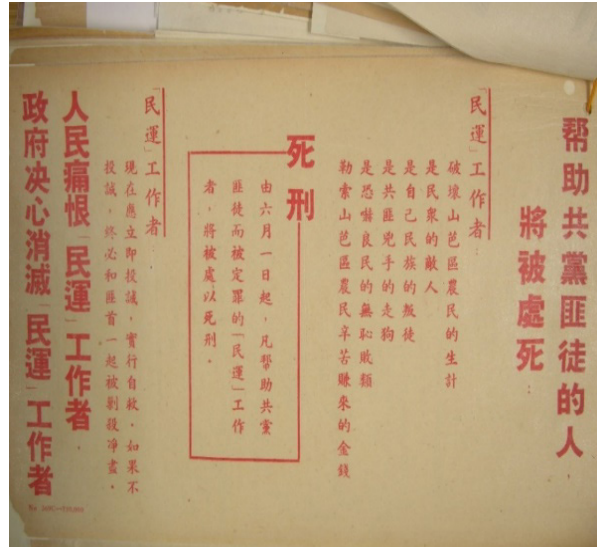 帮助共黨匪徒的人
將被處死：
「民運」工作者：
破壞山芭區農民的生計
是民衆的敵人
是自己民族的叛徒
是共匪兇手的走狗
是恐嚇良民的無恥敗類
勒索山芭區農民辛苦賺來的金錢
死刑
由六月一日起，凡帮助共黨
匪徒而被定罪的「民運」工作
者，將被處以死刑。
「民運」工作者：
現在應立即投誠，實行自救。如果不
投誠，終必和匪首一起被剿殺净盡。
人民痛恨「民運」工作者
政府决心消滅「民運」工作者